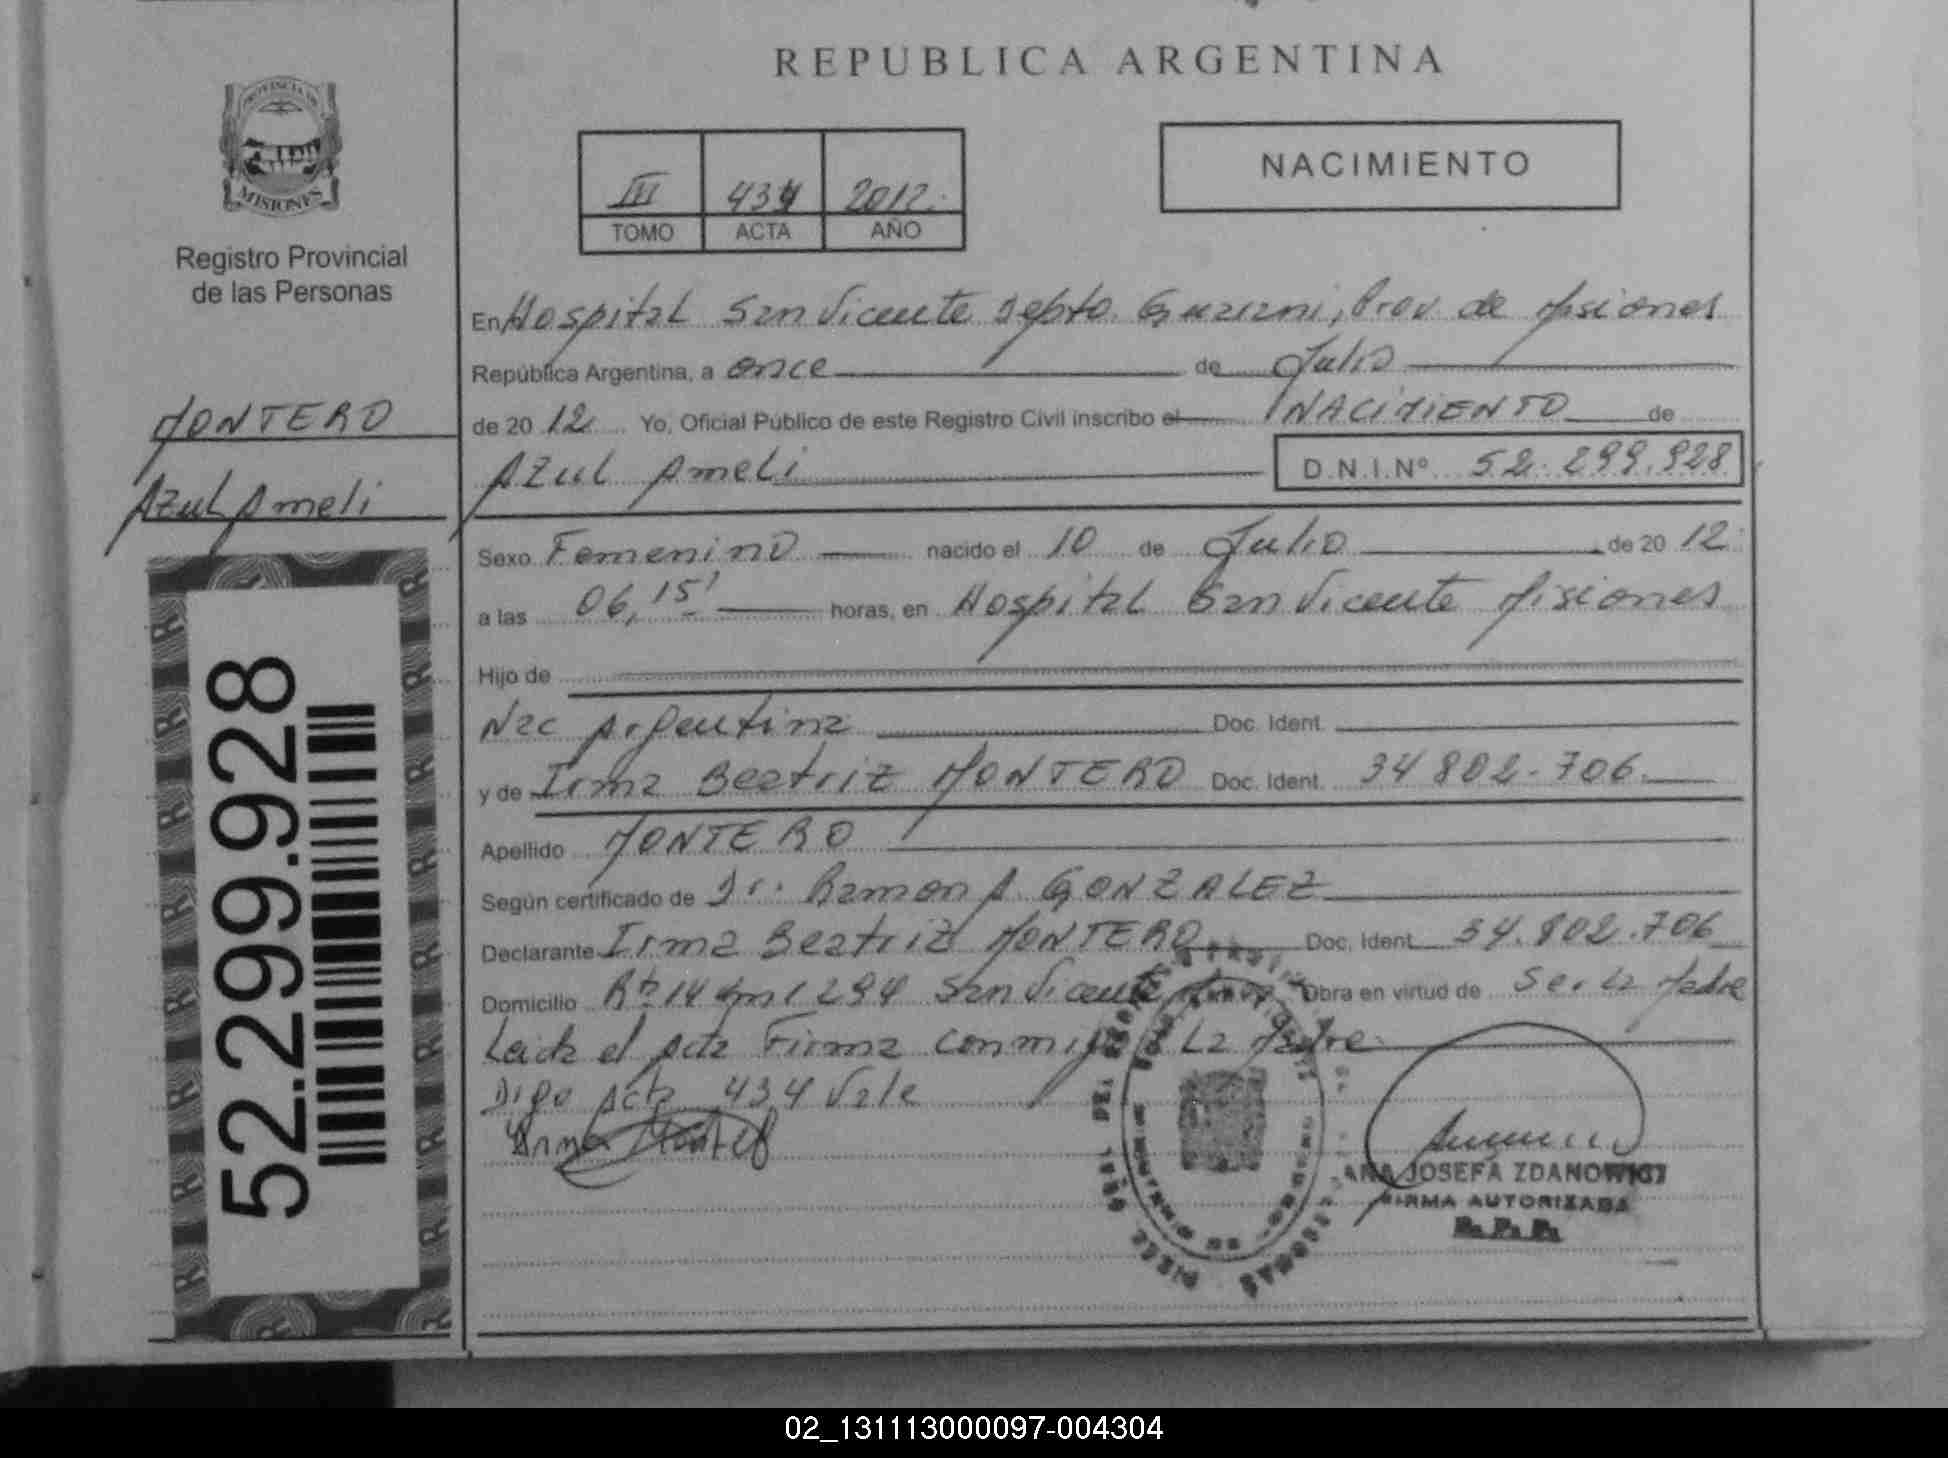 REPUBLICA ARGENTINA
PROVINCIA DE
MISIONES
Registro Provincial
de las Personas
III 434 2012
TOMO ACTA AÑO
NACIMIENTO
MONTERO
Azul Ameli
52.299.928
En Hospital San Vicente Depto. Guarani, Prov. de Misiones
República Argentina, a once de Julio
de 2012 Yo, Oficial Público de este Registro Civil inscribo el NACIMIENTO de
AZul Ameli D.N.I.Nº 52.299.928
Sexo Femenino nacido el 10 de Julio de 2012
a las 06,15' horas, en Hospital San Vicente Misiones
Hijo de
Nac Argentina Doc. Ident.
y de Irma Beatriz MONTERO Doc. Ident. 34802.706
Apellido MONTERO
Según certificado de Dr. Ramon A. GONZALEZ
Declarante Irma Beatriz MONTERO Doc. Ident 34.802.706
Domicilio Rta 14 Km 1294 San Vicente Obra en virtud de Ser La Madre
Leida el Acta Firma Conmigo La Madre
Digo Acta 434 Vale
ANA JOSEFA ZDANOWICZ
FIRMA AUTORIZADA
R.P.P.
02_131113000097-004304